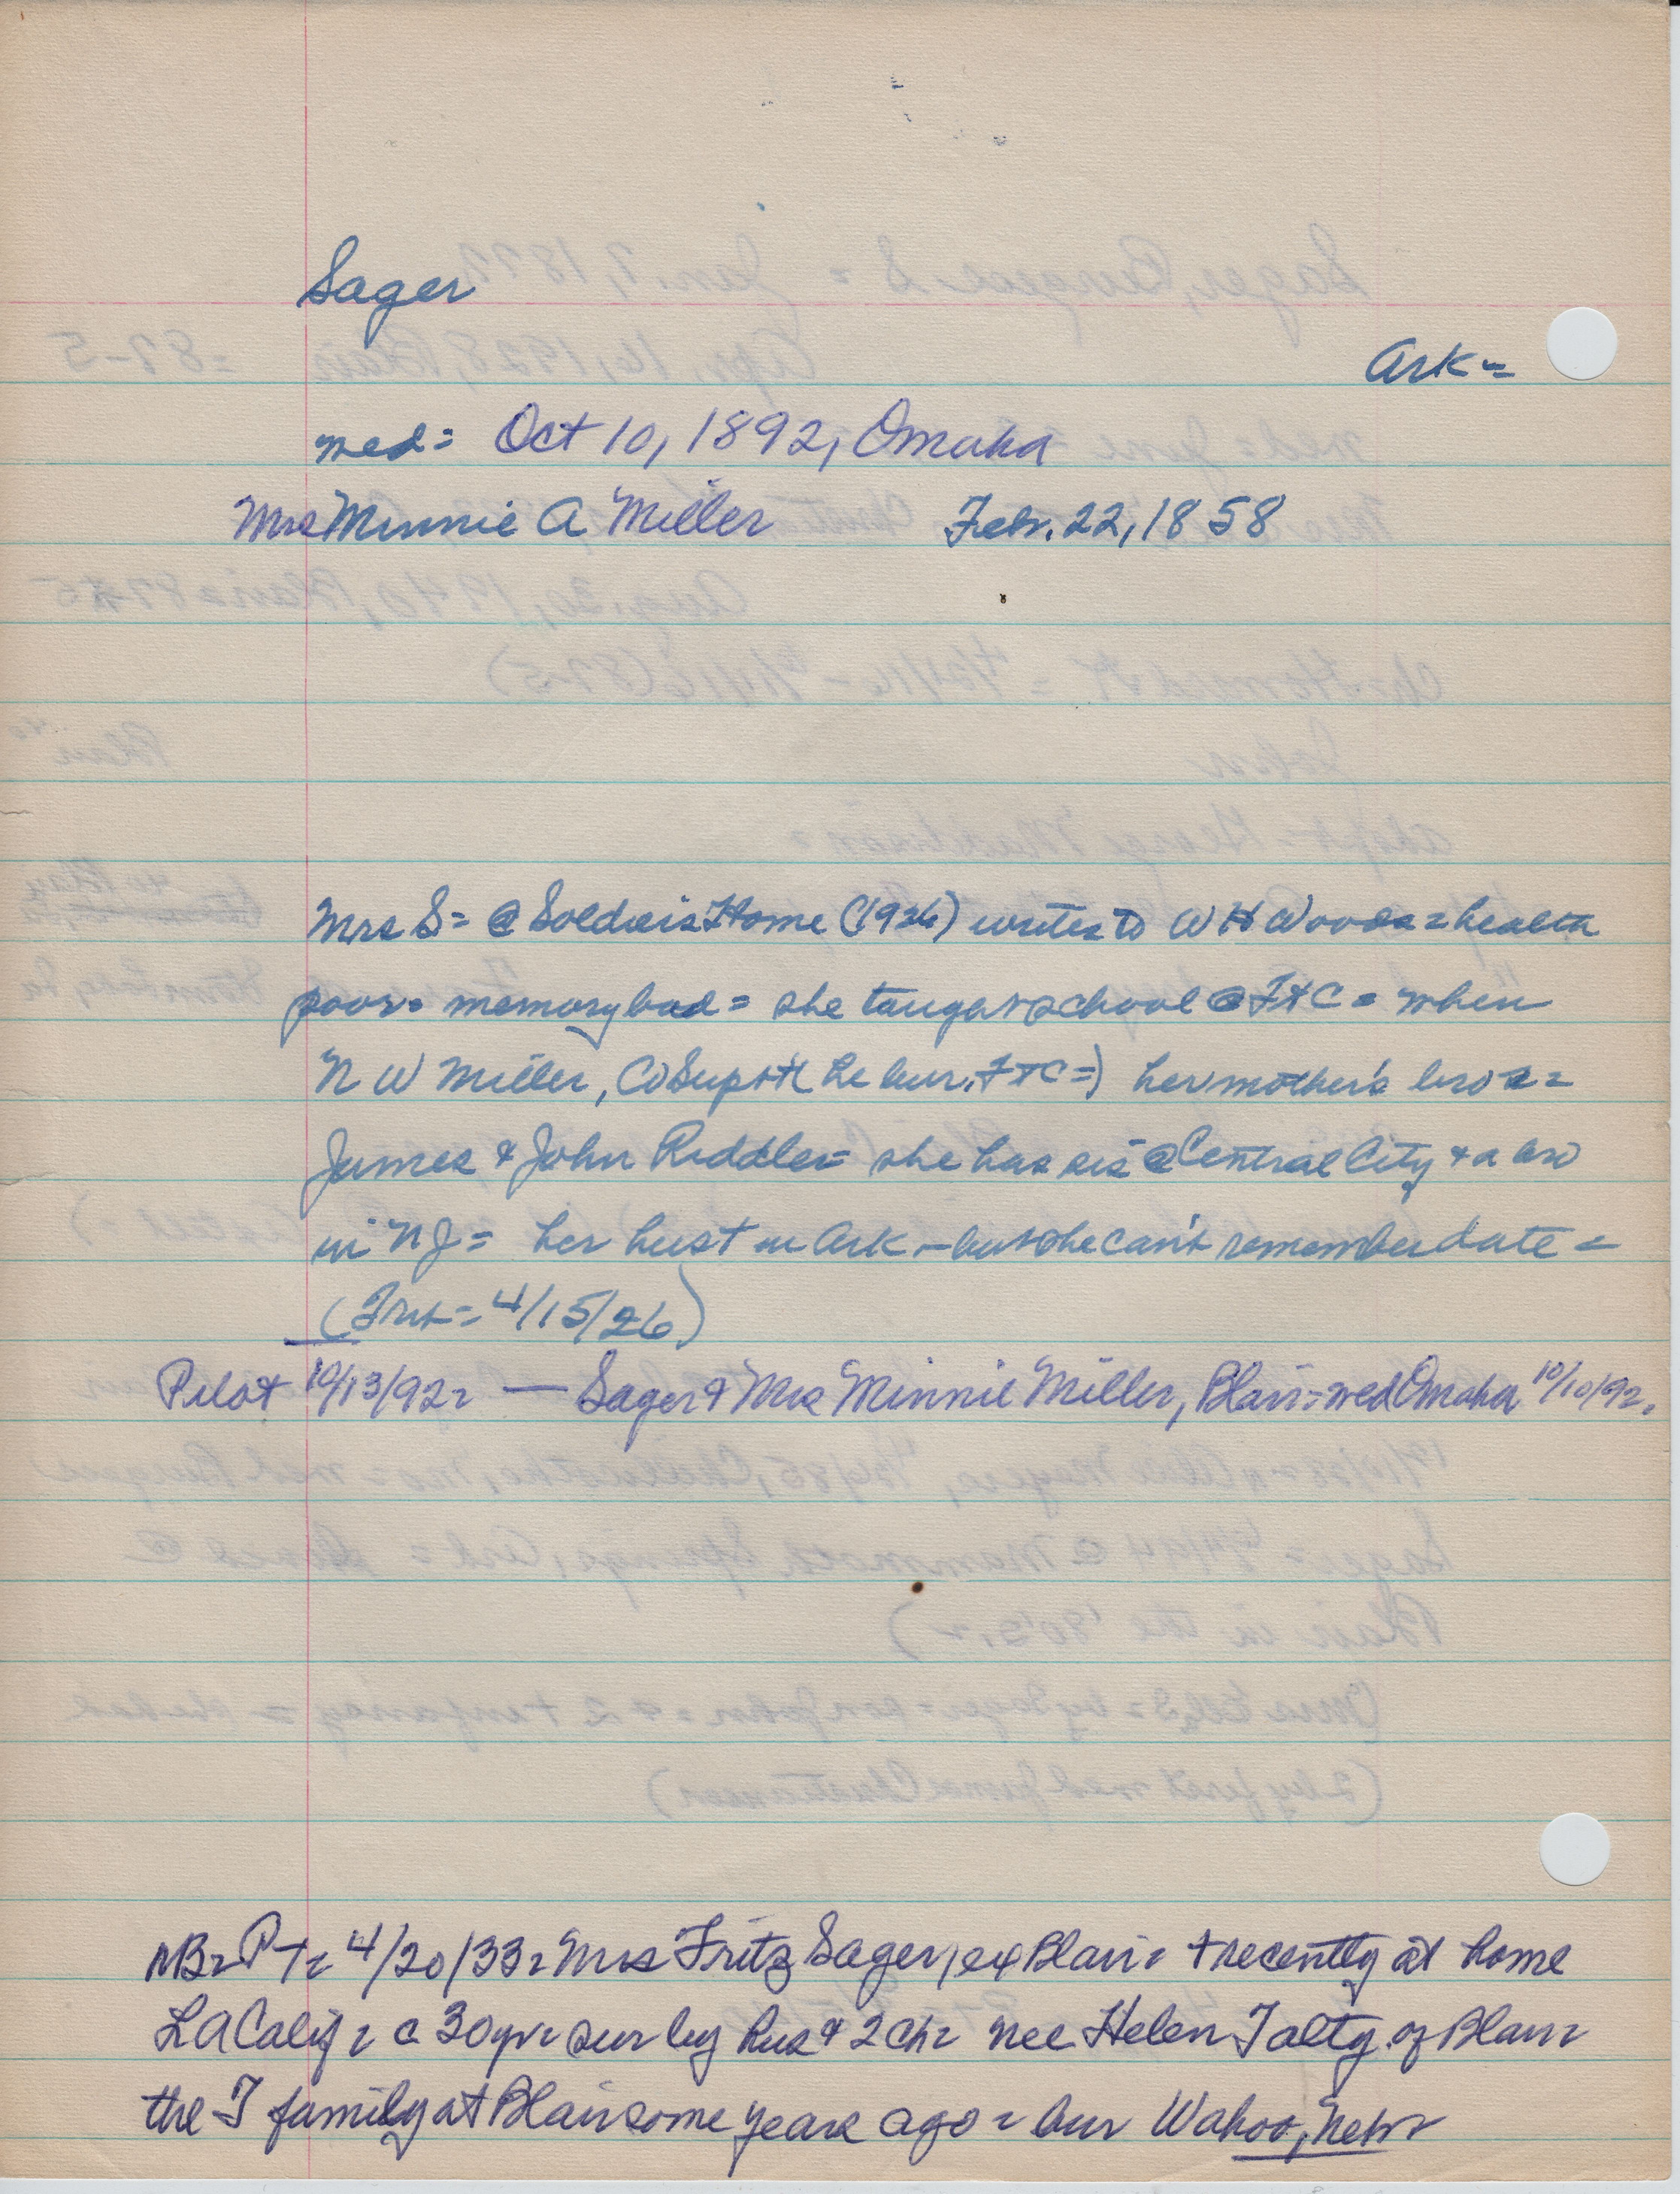 Sager
Ark =
wed = Oct 10, 1892, Omaha
Mrs Minnie A Miller Febr. 22, 1858
Mrs S = @ Soldiers Home (1926) writes to W H Woods = health
poor = memory bad = she taught school @ Ft C = when
N W Miller, Co Supt (he bur. Ft C =) her mother's bros =
James & John Riddler = she has sis @ Central City & a bro
in N J = her hus t in Ark - but she can't remember date =
(Trib = 4/15/26)
Pilot 10/13/92 = — Sager & Mrs Minnie Miller, Blair = wed Omaha 10/10/92.
NB = P T = 4/20/33 = Mrs Fritz Sager, ex Blair = † recently at home
LA Calif = c 30 yr = sur by hus & 2 ch = nee Helen Talty of Blair
the T family at Blair some years ago = bur Wahoo, Nebr